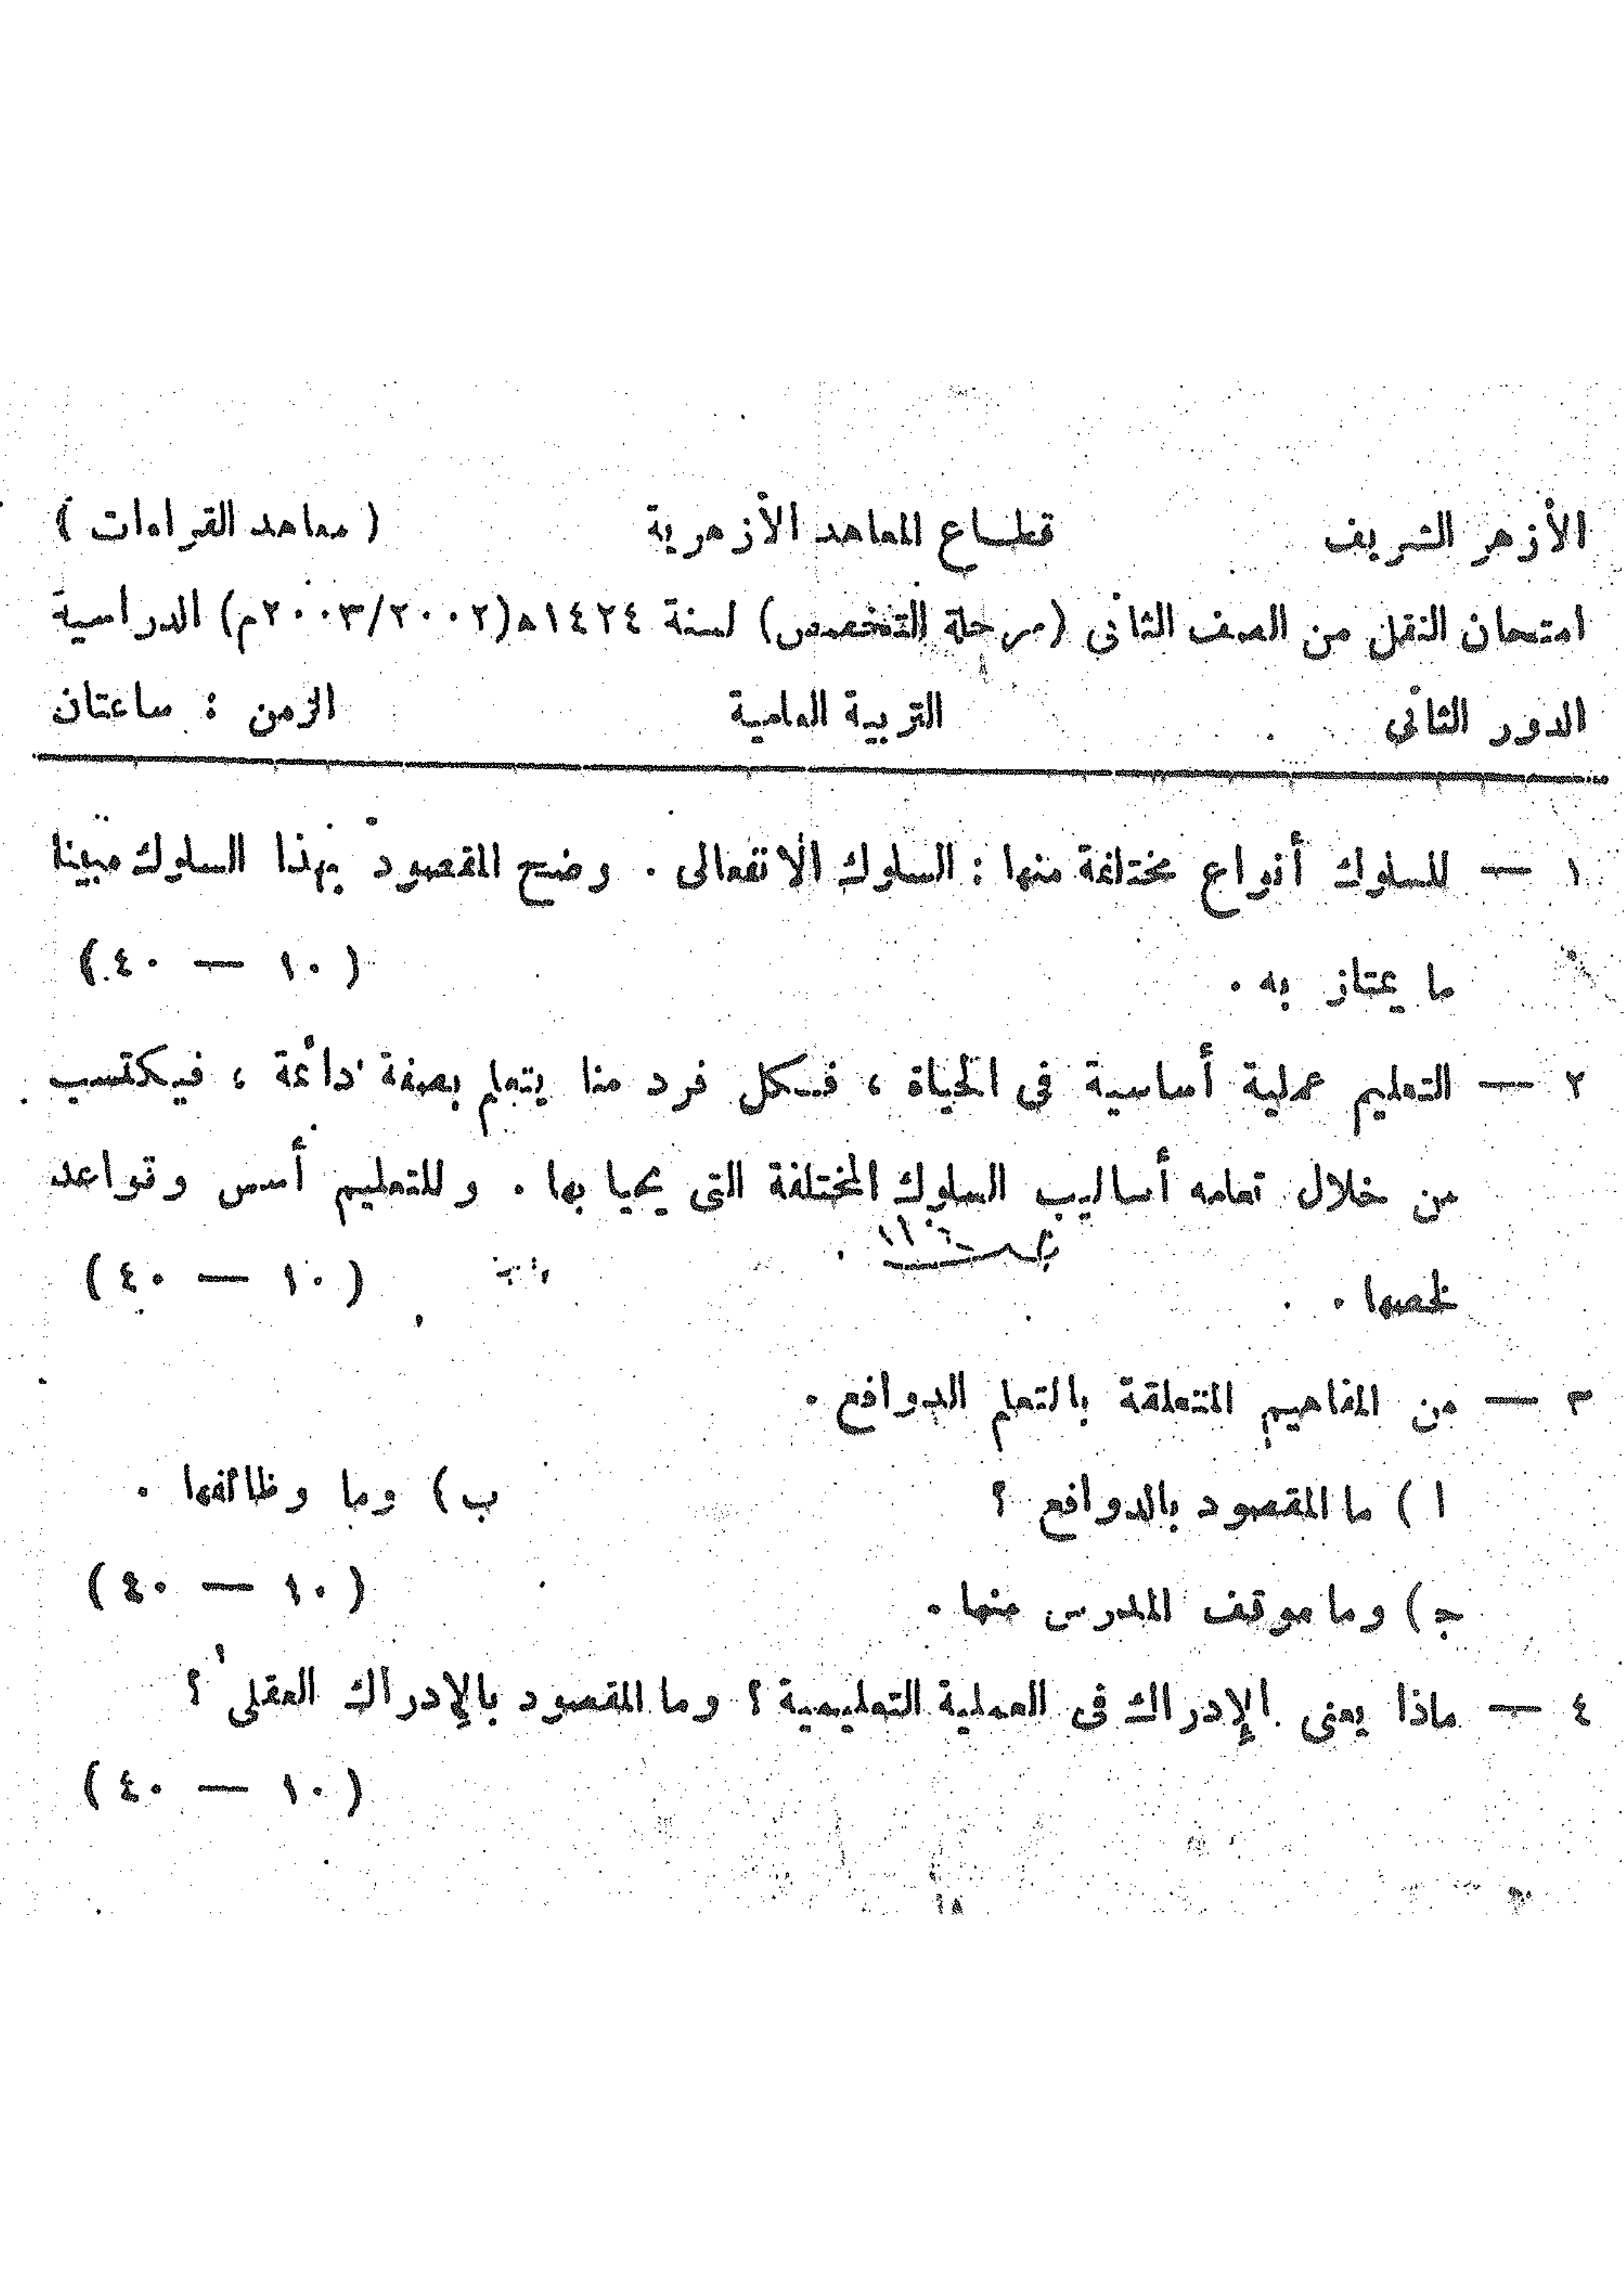 الأزهر الشريف قطاع المعاهد الأزهرية ( معاهد القراءات )
امتحان النقل من الصف الثانى (مرحلة التخصص) لسنة ١٤٢٤ه(٢٠٠٢/٢٠٠٣م) الدراسية
الدور الثانى التربية العامية الزمن : ساعتان
١ — للسلوك أنواع مختلفة منها : السلوك الانفعالى . وضح المقصود بهذا السلوك مبينا
ما يمتاز به . ( ١٠ — ٤٠ )
٢ — التعليم عملية أساسية فى الحياة ، فكل فرد منا يتعلم بصفة دائمة ، فيكتسب
من خلال تعلمه أساليب السلوك المختلفة التى يحيا بها . وللتعليم أسس وقواعد
لخصها . ( ١٠ — ٤٠ )
٣ — من المفاهيم المتعلقة بالتعلم الدوافع .
ا ) ما المقصود بالدوافع ؟ ب ) وما وظائفها .
ج ) وما موقف المدرس منها . ( ١٠ — ٤٠ )
٤ — ماذا يعنى الإدراك فى العملية التعليمية ؟ وما المقصود بالإدراك العقلى ؟
( ١٠ — ٤٠ )